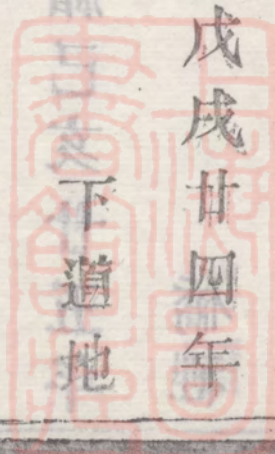 戊戌廿四年
下道地